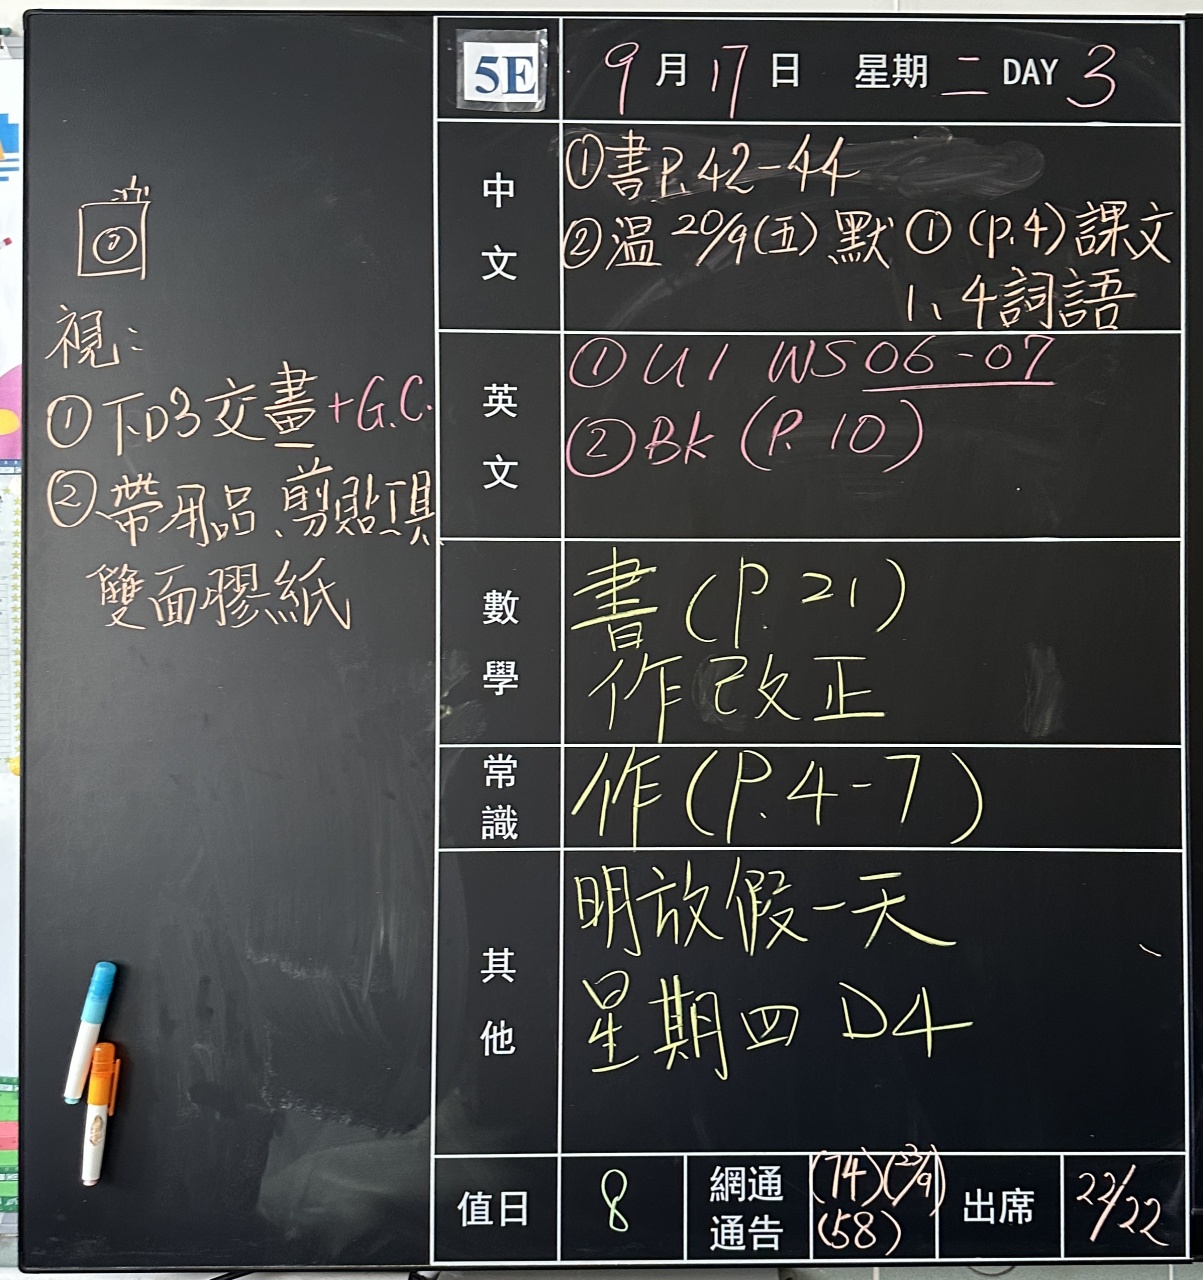 5E
9月17日 星期二 DAY 3
中文
①書P.42-44
②溫20/9(五)默①(P.4)課文
1、4詞語
英文
①U1 WS06-07
②BK (P.10)
數學
書(P.21)
作改正
常識
作(P.4-7)
其他
明放假一天
星期四 D4
值日
8
網通
通告
(74)(23/9)
(58)
出席
22/22
視:
①下D3交畫+G.C.
②帶用品、剪貼工具
雙面膠紙